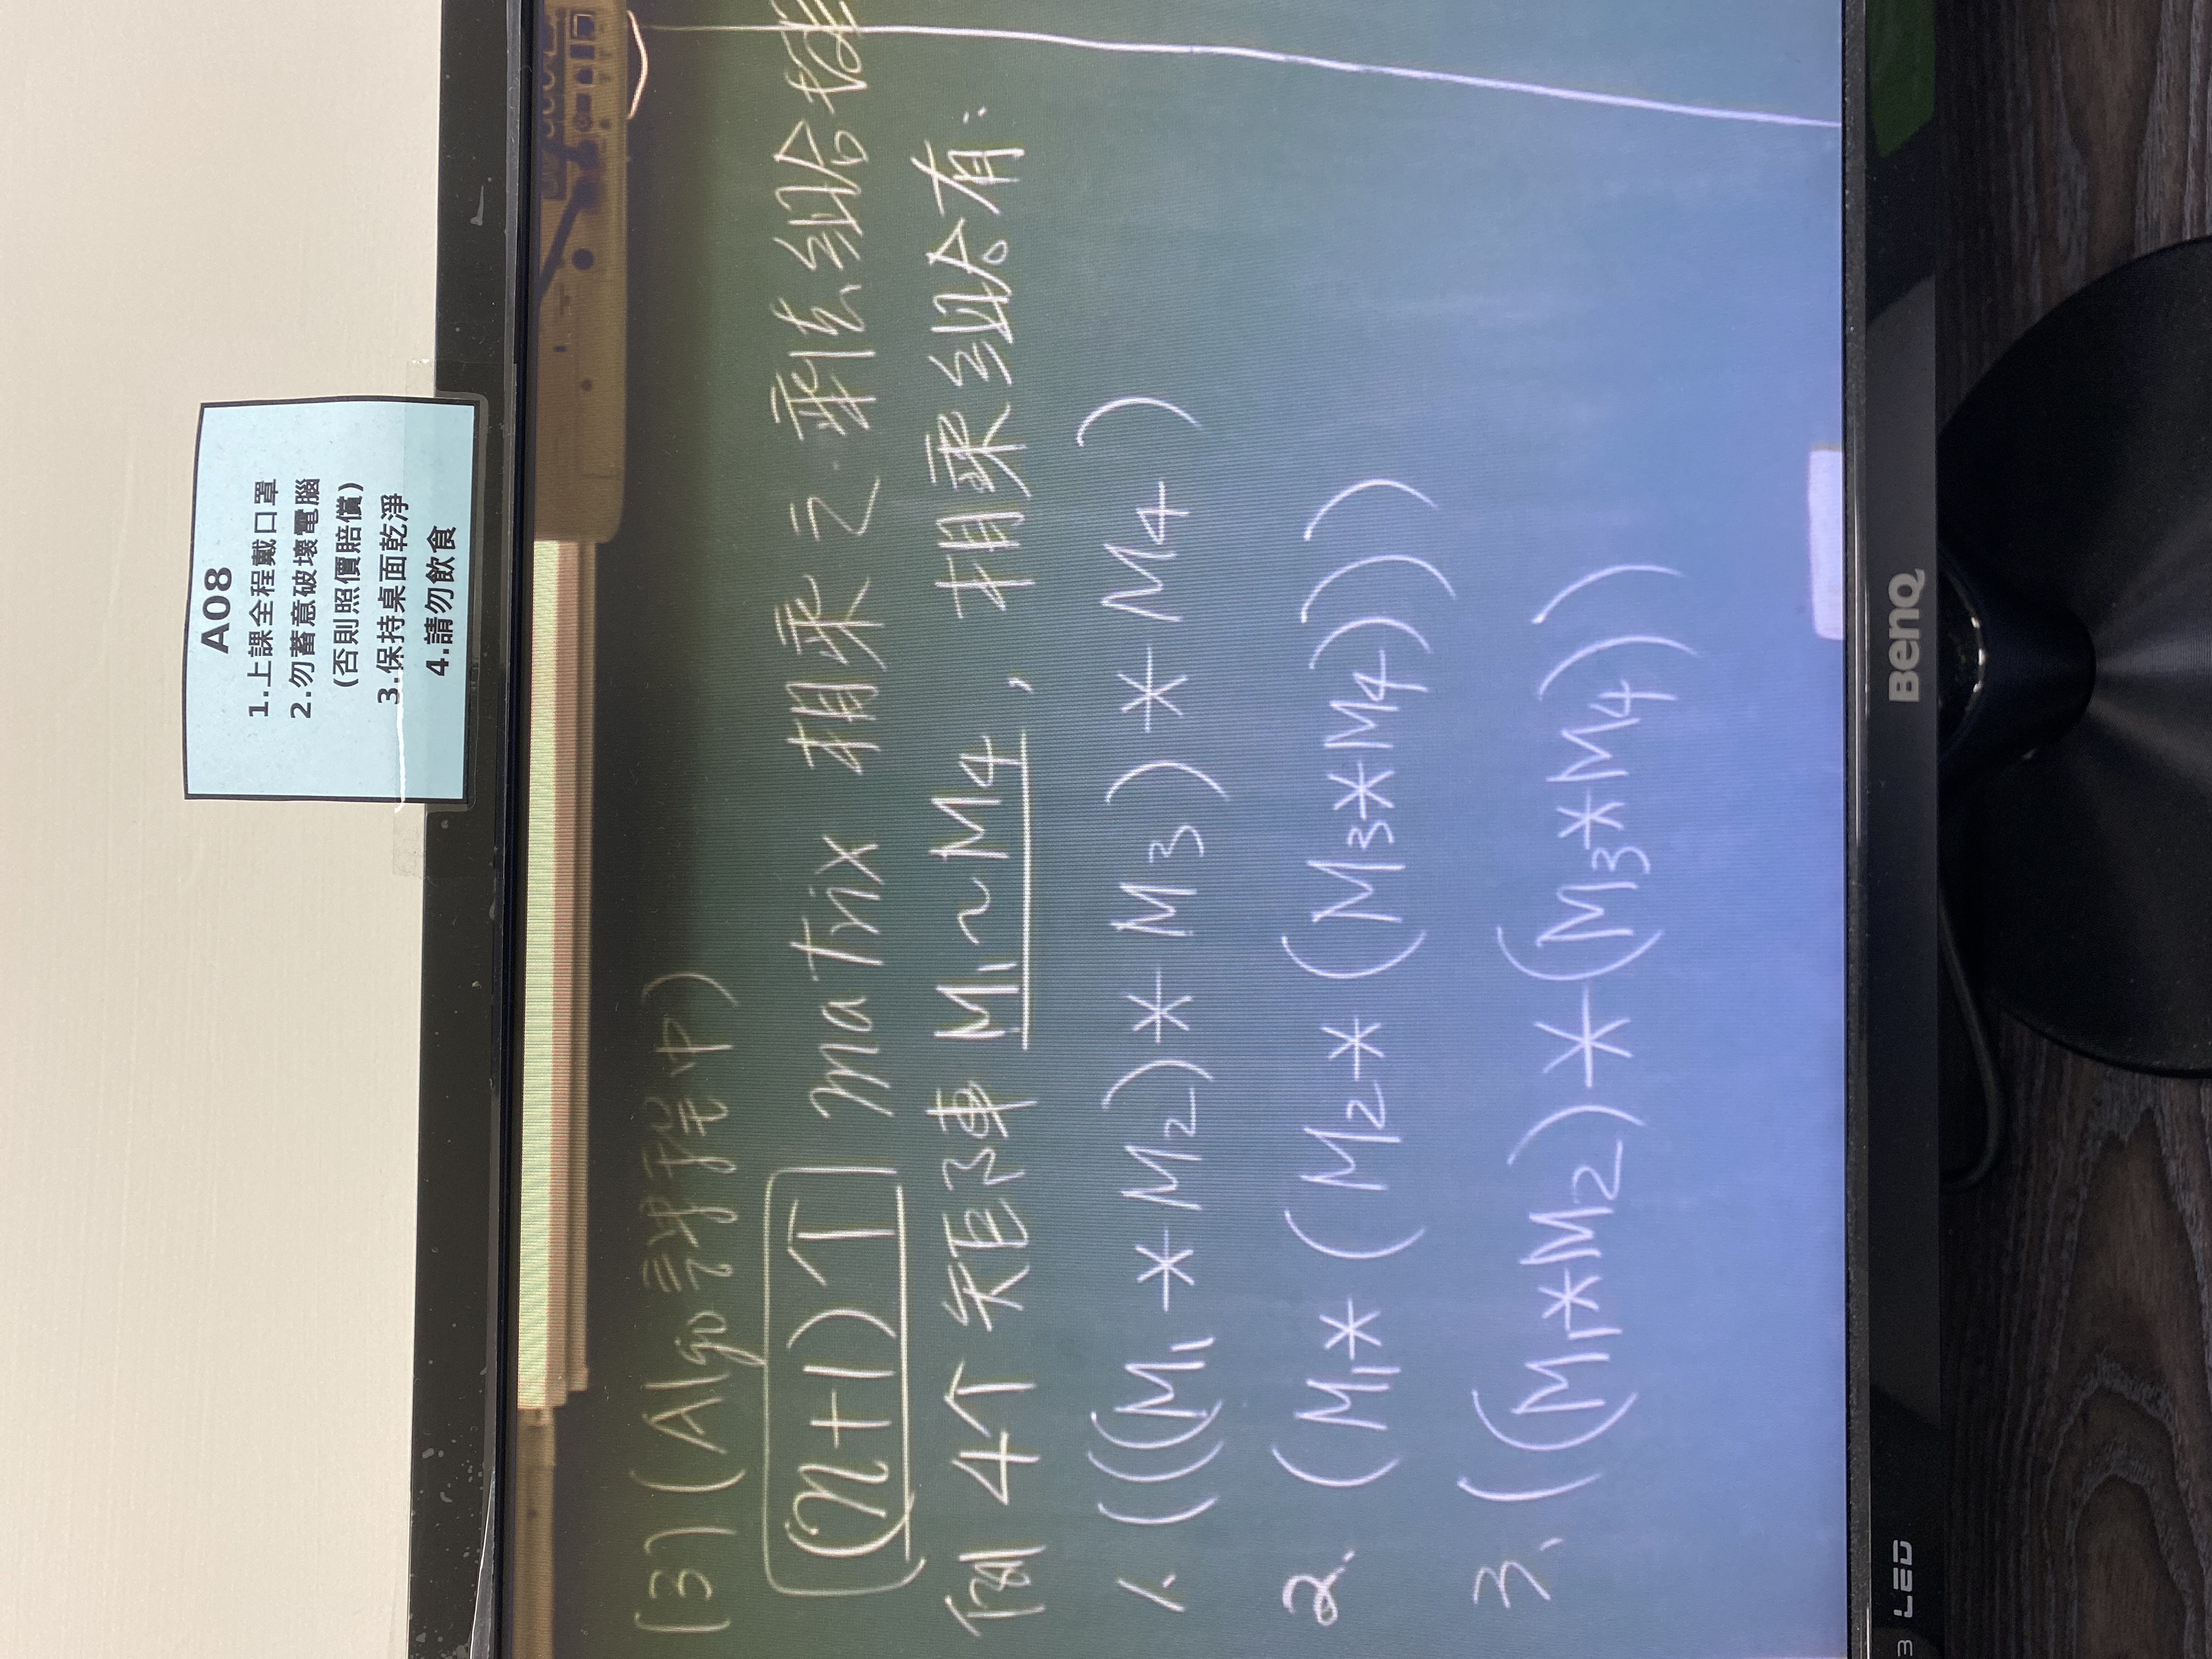 A08
1.上課全程戴口罩
2.勿蓄意破壞電腦
(否則照價賠償)
3.保持桌面乾淨
4.請勿飲食
(3) (Algo 課程中)
(n+1)个 matrix 相乘之乘法組合
例 4个 矩陣 M1~M4, 相乘組合有:
1. (((M1 * M2) * M3) * M4)
2. (M1* (M2* (M3*M4)))
3. ((M1*M2)*(M3*M4))
3 LED
BenQ